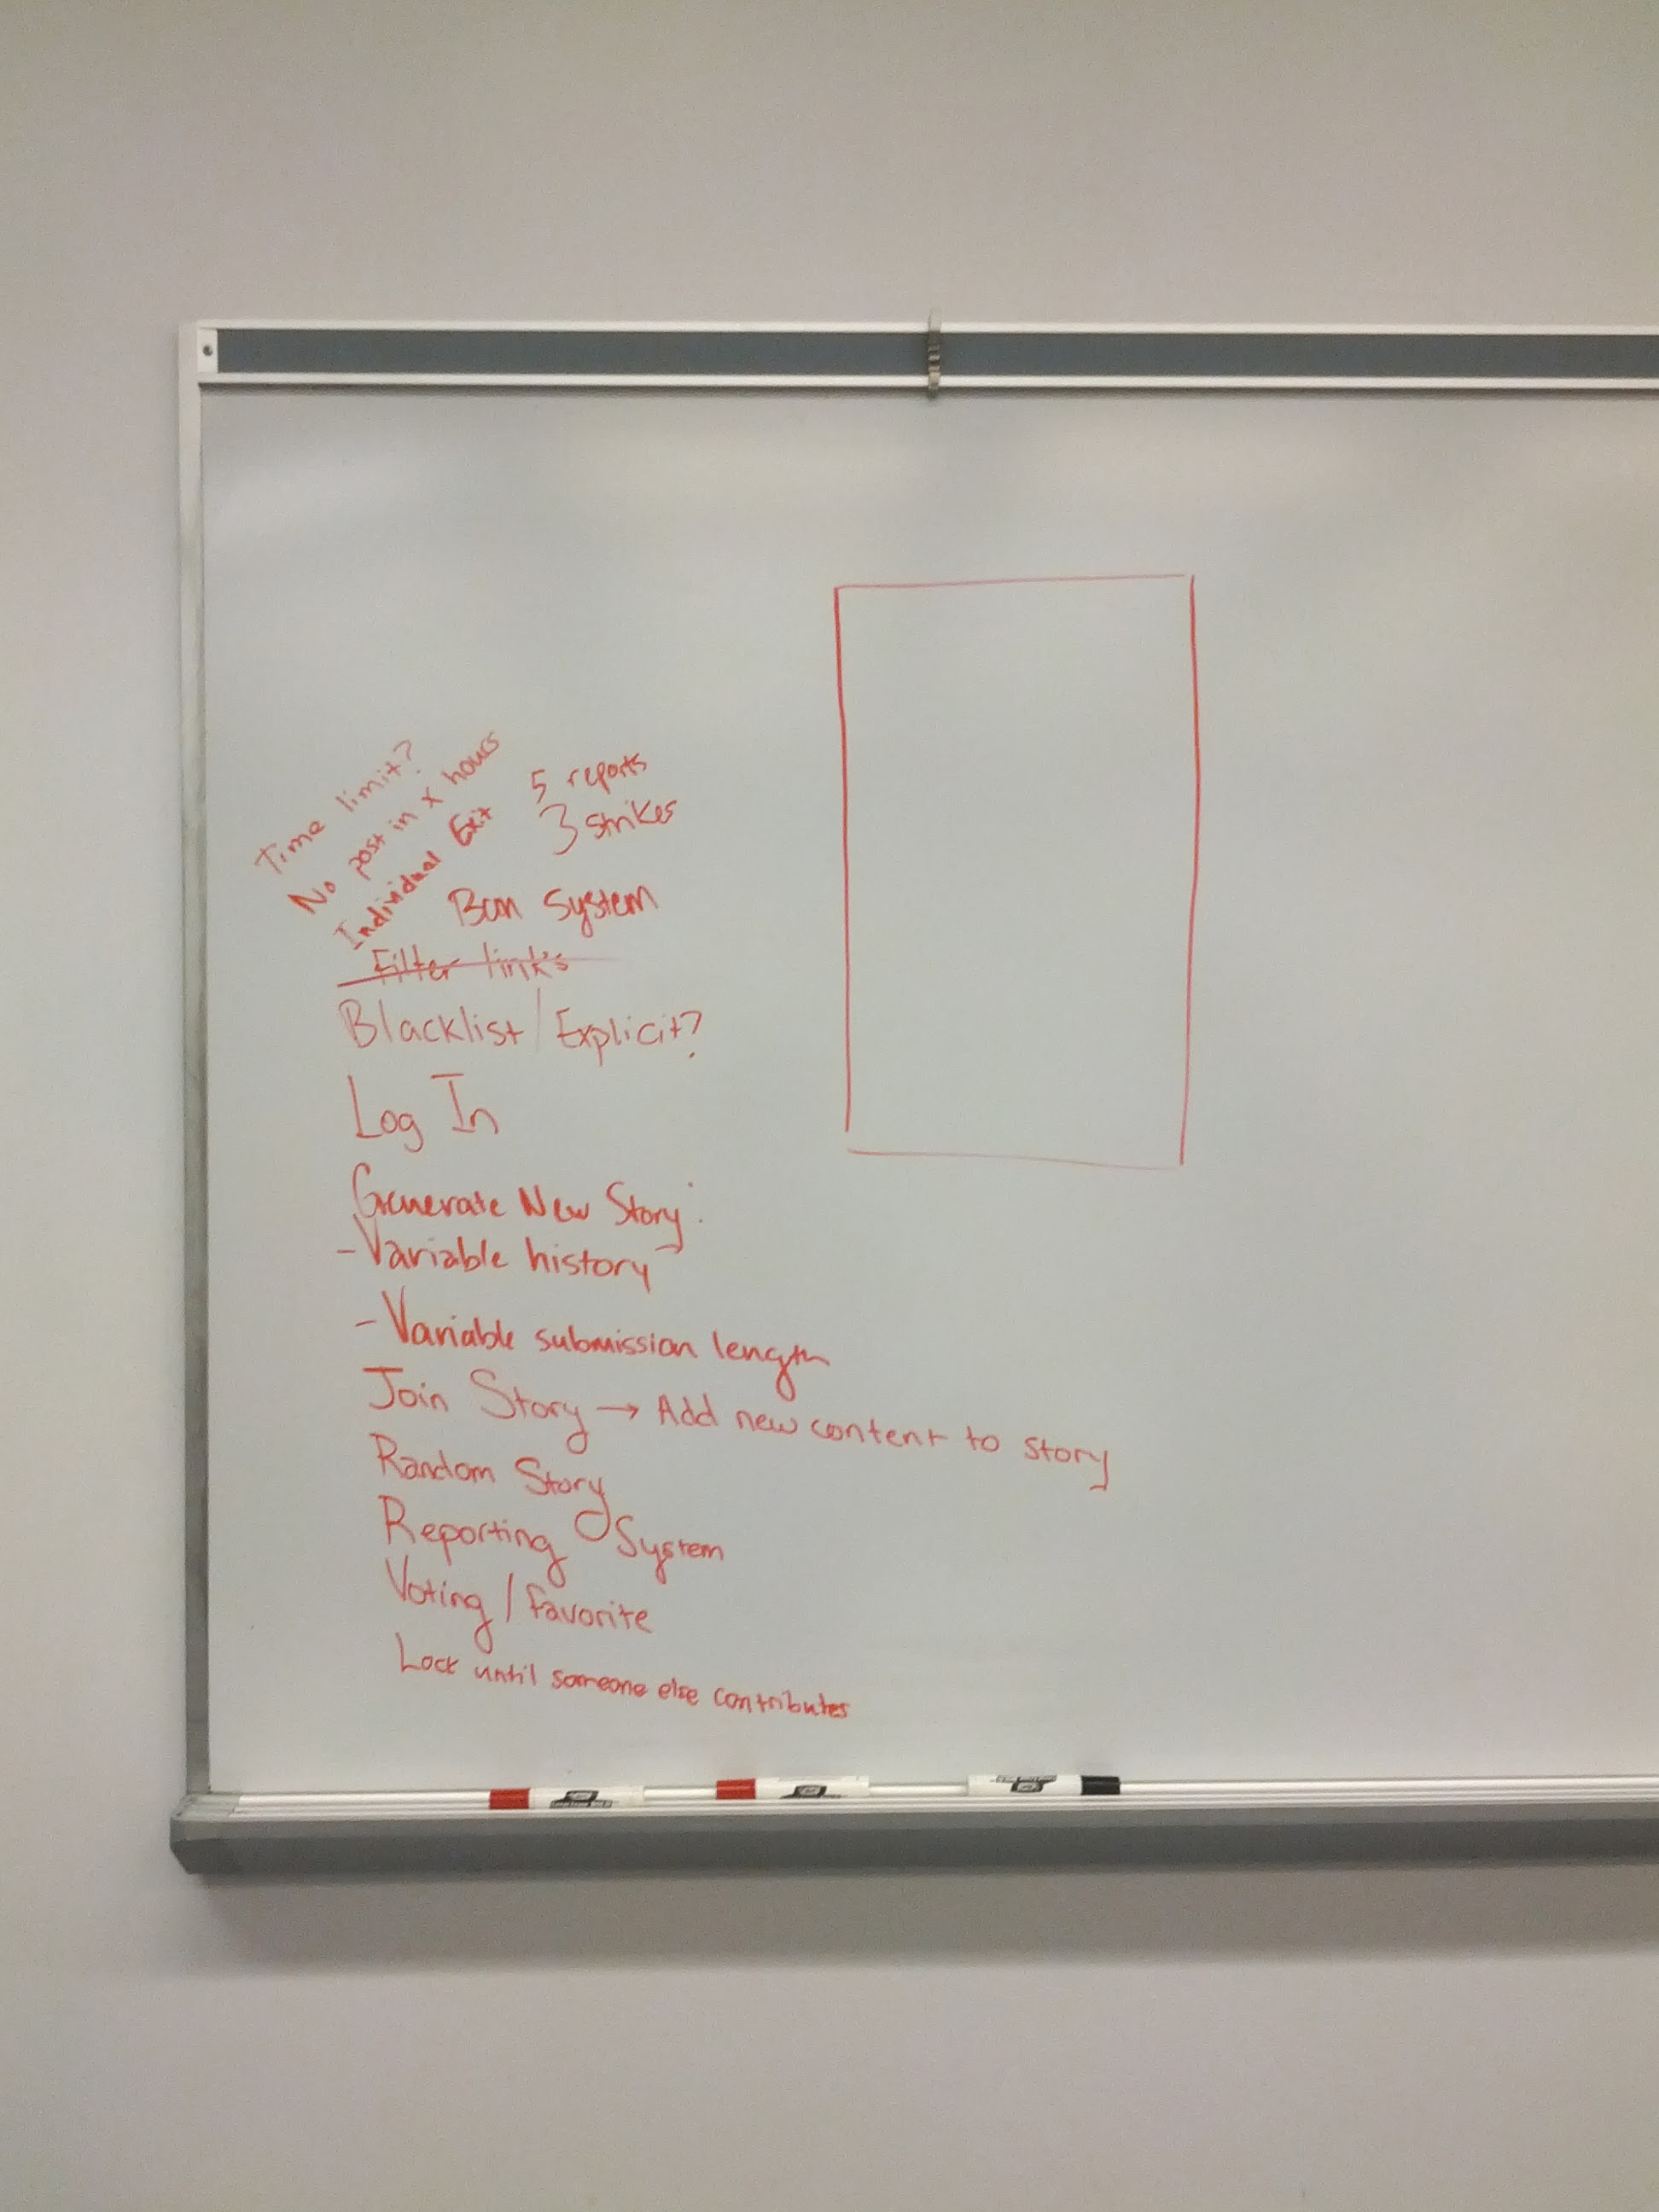 Time limit?
No post in x hours
Individual Exit
5 reports
3 strikes
Ban System
Filter links
Blacklist / Explicit?
Log In
Generate New Story:
- Variable history
- Variable submission length
Join Story → Add new content to story
Random Story
Reporting System
Voting / favorite
Lock until someone else contributes